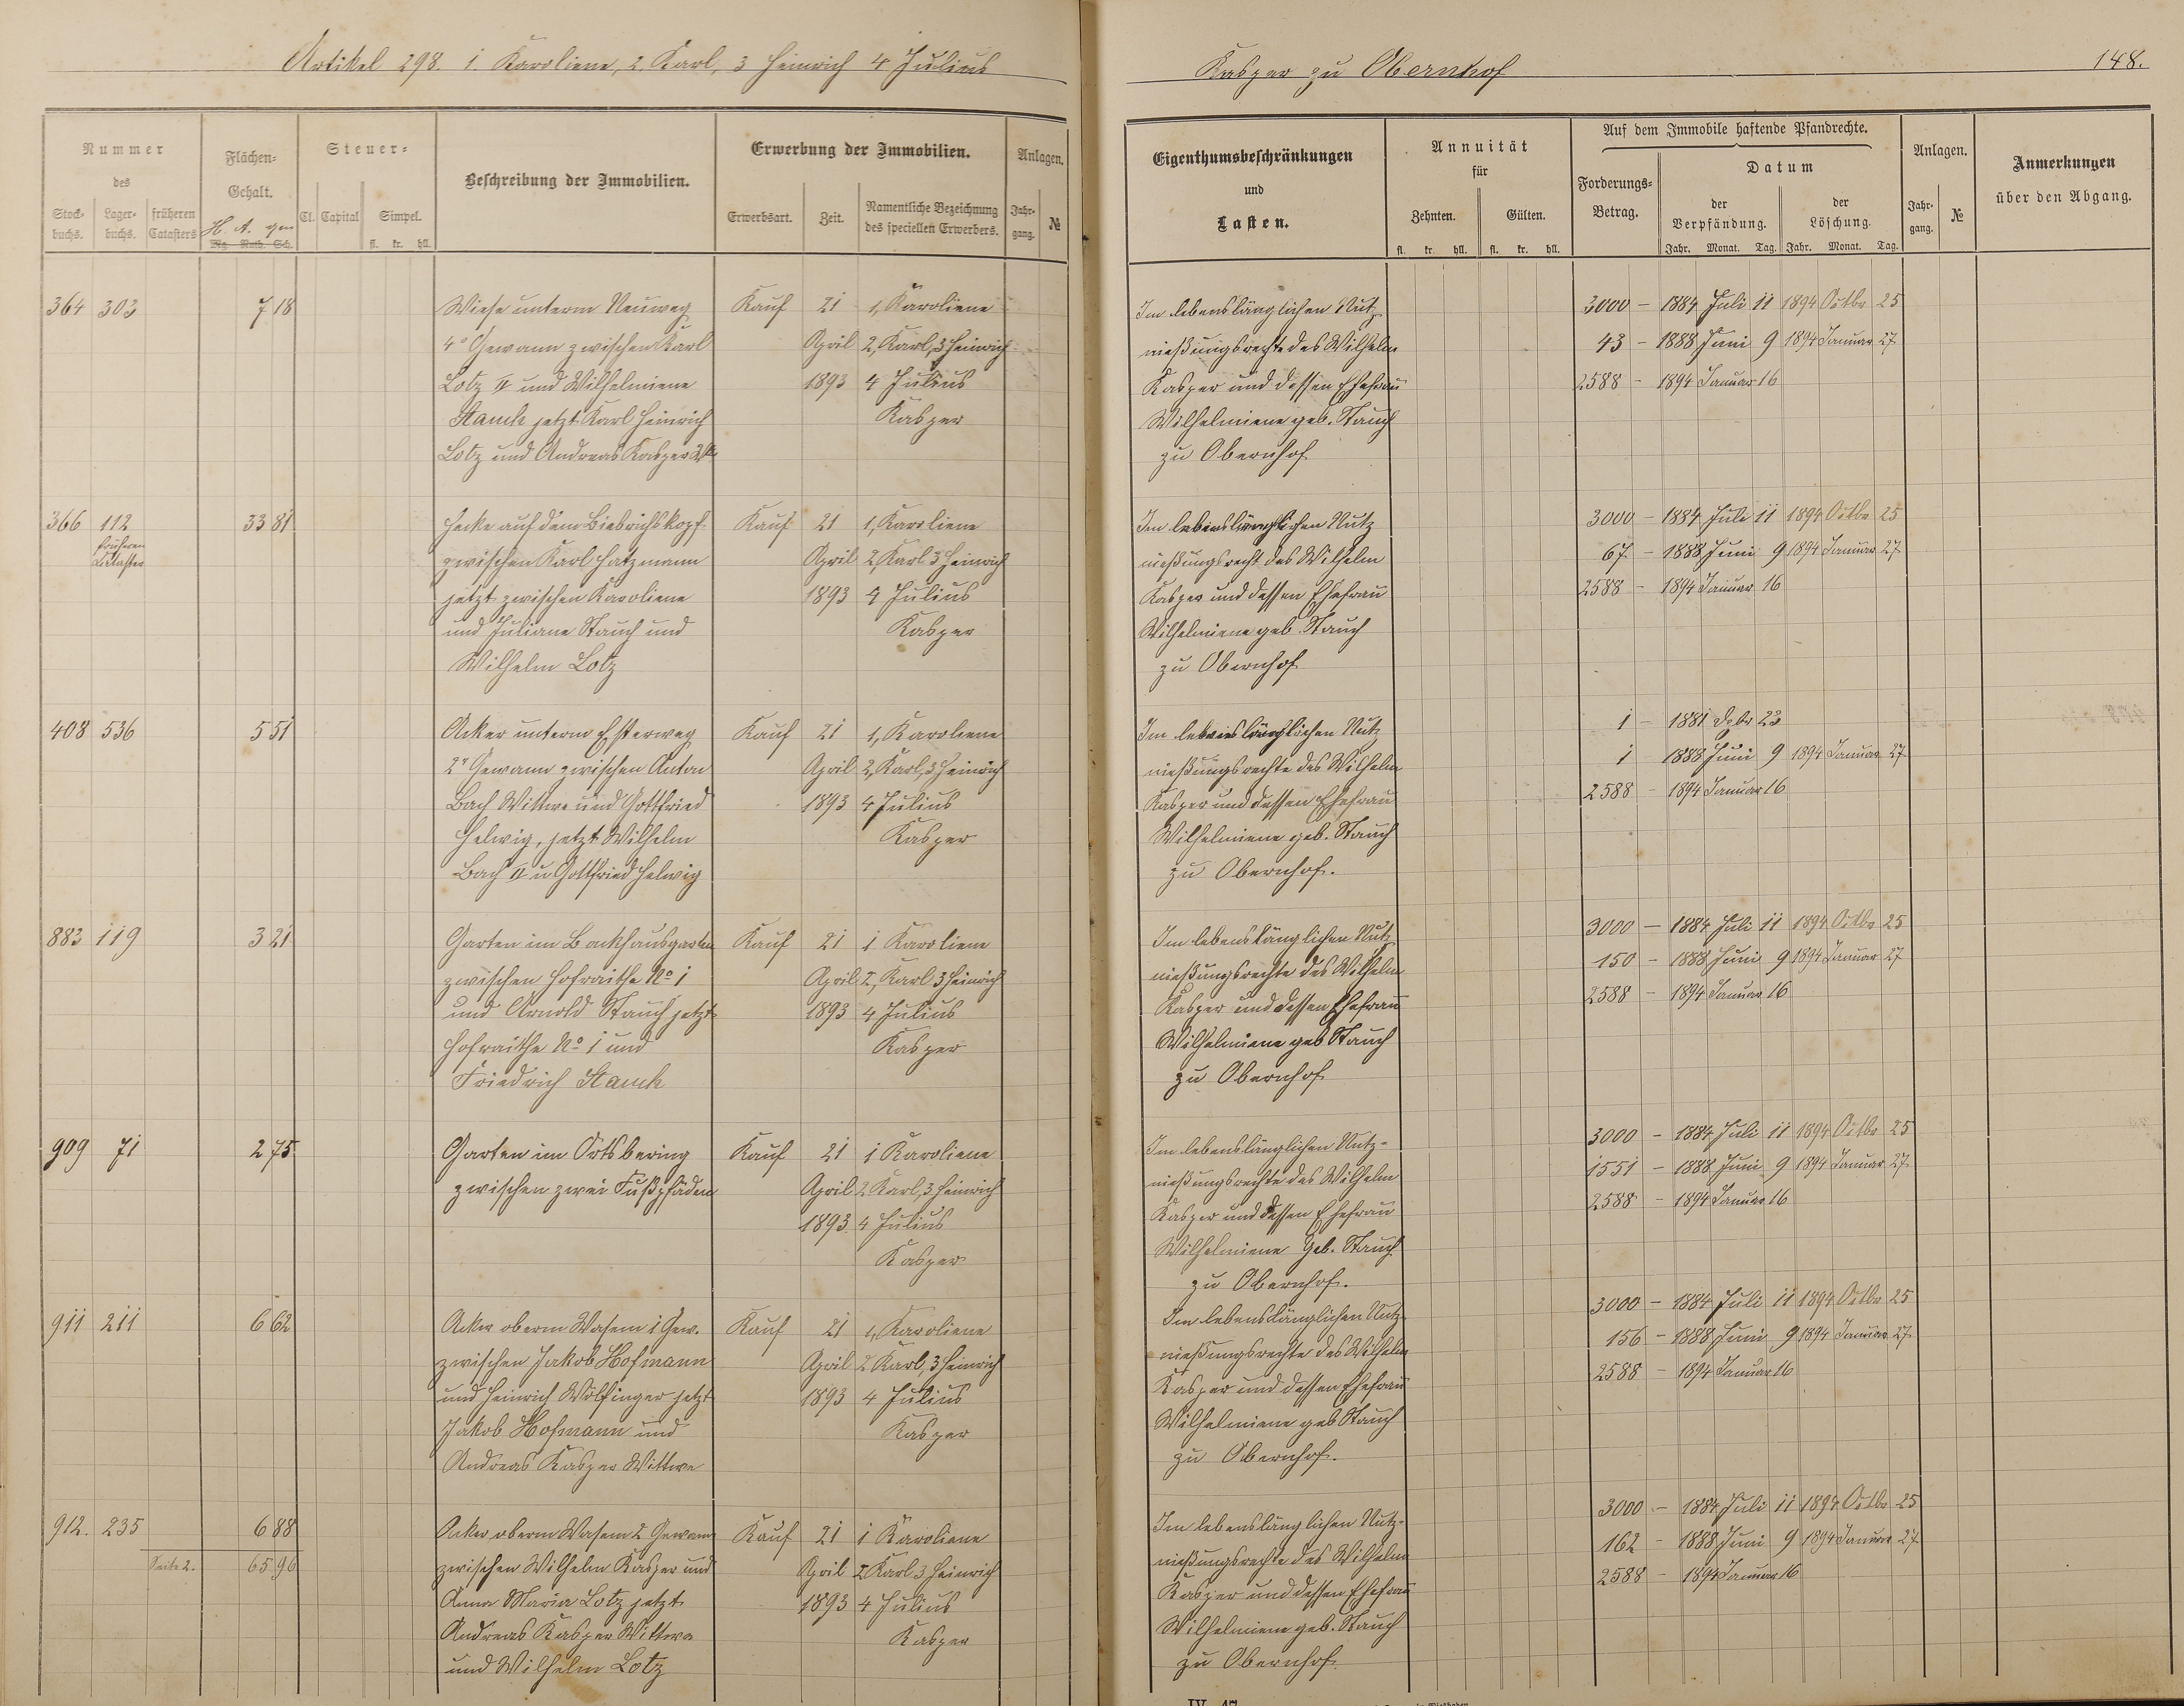 Artikel 298. 1. Karoliene, 2. Karl, 3 Heinrich 4 Julius
Nummer
des
Stock-
buchs.
Lager-
buchs.
früheren
Catasters
Flächen-
Gehalt.
H. A. qm
Mg. Ruth. Sch.
Steuer-
Cl.
Capital
Simpel.
fl. kr. hll.
Beschreibung der Immobilien.
Erwerbung der Immobilien.
Erwerbsart.
Zeit.
Namentliche Bezeichnung
des speciellen Erwerbers.
Anlagen.
Jahr-
gang.
№
364 303 7 18
Wiese unterm Neuweg
4r Gewann zwischen Karl
Lotz II und Wilhelmiene
Stauch jetzt Karl Heinrich
Lotz und Andreas Kasper Wb
Kauf
21
April
1893
1, Karoliene
2, Karl, 3 Heinrich
4 Julius
Kasper
366 112
früheren
Cataster
33 81
Hecke auf dem Biebrichskopf
zwischen Karl Hatzmann
jetzt zwischen Karoliene
und Juliane Stauch und
Wilhelm Lotz
Kauf
21
April
1893
1, Karoliene
2, Karl 3 Heinrich
4 Julius
Kasper
408 536 5 51
Acker unterm Esterweg
2r Gewann zwischen Anton
Bach Wittwe und Gottfried
Helwig, jetzt Wilhelm
Bach II u Gottfried Helwig
Kauf
21
April
1893
1, Karoliene
2, Karl, 3 Heinrich
4 Julius
Kasper
883 119 3 21
Garten im Backhausgarten
zwischen Hofraithe No 1
und Arnold Stauch jetzt
Hofraithe No 1 und
Friedrich Stauch
Kauf
21
April
1893
1 Karoliene
2, Karl 3 Heinrich
4 Julius
Kasper
909 71 2 75
Garten im Ortsbering
zwischen zwei Fußpfäden
Kauf
21
April
1893.
1 Karoliene
2 Karl, 3 Heinrich
4 Julius
Kasper
911 211 6 62
Acker oberm Wasem 1 Gew.
zwischen Jakob Hofmann
und Heinrich Wölfinger jetzt
Jakob Hofmann und
Andreas Kasper Wittwe
Kauf
21
April
1893
1, Karoliene
2 Karl, 3 Heinrich
4 Julius
Kasper
912. 235 6 88
Seite 2. 65 96
Acker oberm Wasem 2 Gewann
zwischen Wilhelm Kasper und
Anna Maria Lotz jetzt
Andreas Kasper Wittwe
und Wilhelm Lotz
Kauf
21
April
1893
1 Karoliene
2 Karl 3 Heinrich
4 Julius
Kasper
Kasper zu Obernhof
148.
Eigenthumsbeschränkungen
und
Lasten.
Annuität
für
Zehnten.
Gülten.
fl. kr. hll. fl. kr. hll.
Auf dem Immobile haftende Pfandrechte.
Forderungs-
Betrag.
Datum
der
Verpfändung.
der
Löschung.
Jahr. Monat. Tag. Jahr. Monat. Tag.
Anlagen.
Jahr-
gang.
№
Anmerkungen
über den Abgang.
Im lebenslänglichen Nutz
nießungsrechte des Wilhelm
Kasper und dessen Ehefrau
Wilhelmiene geb. Stauch
zu Obernhof
3000 – 1884 Juli 11 1894 Octbr 25
43 – 1888 Juni 9 1894 Januar 27
2588 – 1894 Januar 16
Im lebenslänglichen Nutz
nießungsrecht des Wilhelm
Kasper und dessen Ehefrau
Wilhelmiene geb. Stauch
zu Obernhof
3000 – 1884 Juli 11 1894 Octbr 25
67. – 1888 Juni 9 1894 Januar 27
2588 – 1894 Januar 16
Im lebenslänglichen Nutz
nießungsrechte des Wilhelm
Kasper und dessen Ehefrau
Wilhelmiene geb. Stauch
zu Obernhof.
1 – 1881 Dzbr 23
1 – 1888 Juni 9 1894 Januar 27
2588 – 1894 Januar 16
Im lebenslänglichen Nutz
nießungsrechte des Wilhelm
Kasper und dessen Ehefrau
Wilhelmiene geb Stauch
zu Obernhof
3000 – 1884 Juli 11 1894 Octbr 25
150 – 1888 Juni 9 1894 Januar 27
2588 – 1894 Januar 16
Im lebenslänglichen Nutz-
nießungsrechte des Wilhelm
Kasper und dessen Ehefrau
Wilhelmiene Geb. Stauch
zu Obernhof.
3000 – 1884 Juli 11 1894 Octbr 25
1551 – 1888 Juni 9 1894 Januar 27
2588 – 1894 Januar 16
Im lebenslänglichen Nutz
nießungsrechte des Wilhelm
Kasper und dessen Ehefrau
Wilhelmiene geb Stauch
zu Obernhof.
3000 – 1884 Juli 11 1894 Octbr 25
156 – 1888 Juni 9 1894 Januar 27
2588 – 1894 Januar 16
Im lebenslänglichen Nutz-
nießungsrechte des Wilhelm
Kasper und dessen Ehefrau
Wilhelmiene geb. Stauch
zu Obernhof
3000 – 1884 Juli 11 1894 Octbr 25
162 – 1888 Juni 9 1894 Januar 27
2588 – 1894 Januar 16